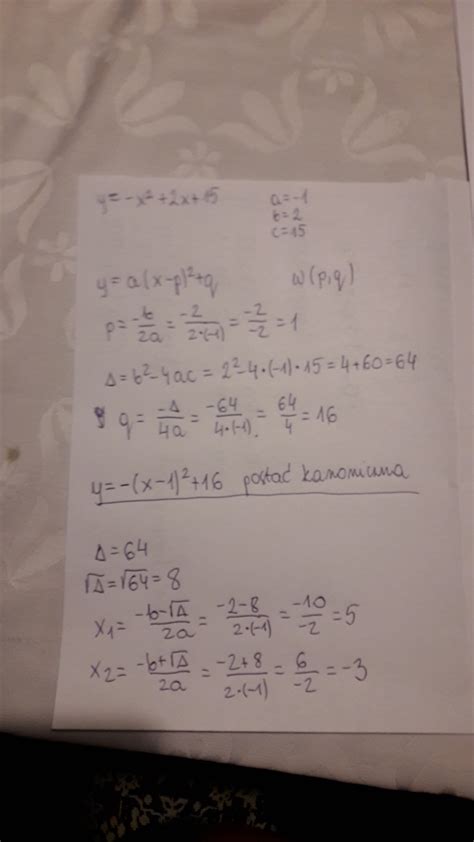 y = -x² + 2x + 15
a = -1
b = 2
c = 15
y = a(x-p)² + q
W(p,q)
p = -b/2a = -2/2•(-1) = -2/-2 = 1
Δ = b² - 4ac = 2² - 4•(-1)•15 = 4 + 60 = 64
q = -Δ/4a = -64/4•(-1) = 64/4 = 16
y = -(x-1)² + 16 postać kanoniczna
Δ = 64
√Δ = √64 = 8
x₁ = -b-√Δ/2a = -2-8/2•(-1) = -10/-2 = 5
x₂ = -b+√Δ/2a = -2+8/2•(-1) = 6/-2 = -3